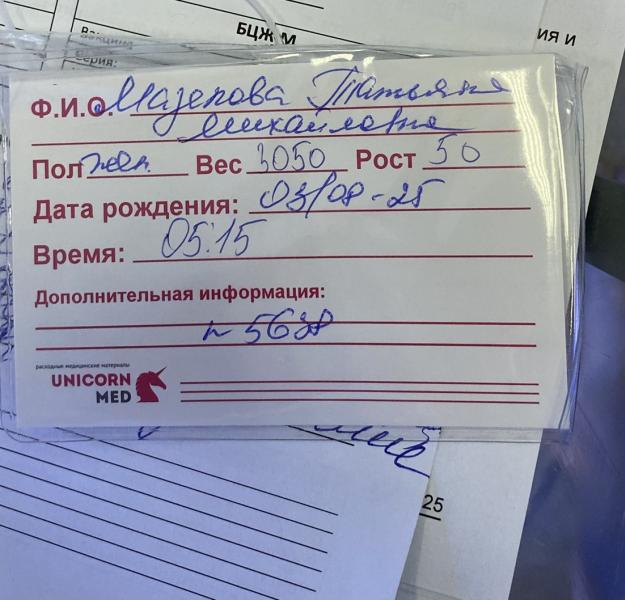 БЦЖ М
ия и
Вакцина
Серия:
Ф.И.О. Мазепова Татьяна
Михайловна
Пол жен. Вес 3050 Рост 50
Дата рождения: 03/08-25
Время: 05:15
Дополнительная информация:
расходные медицинские материалы
UNICORN
MED
25